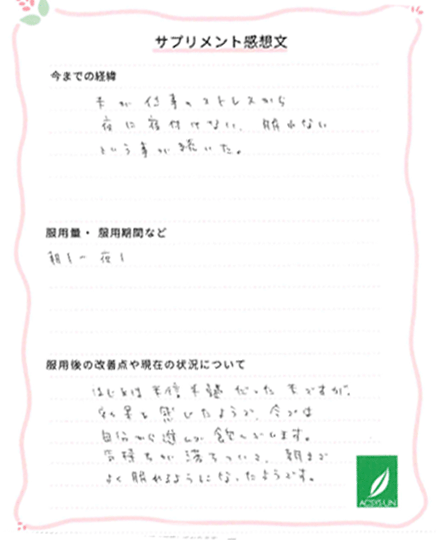 サプリメント感想文
今までの経緯
夫が仕事のストレスから
夜に寝付けない、眠れない
という事が続いた。
服用量・服用期間など
朝1 夜1
服用後の改善点や現在の状況について
はじめは半信半疑だった夫ですが、
効果を感じたようで、今では
自分から進んで飲んでいます。
気持ちが落ちついて、朝まで
よく眠れるようになったようです。
ACTYS-UN